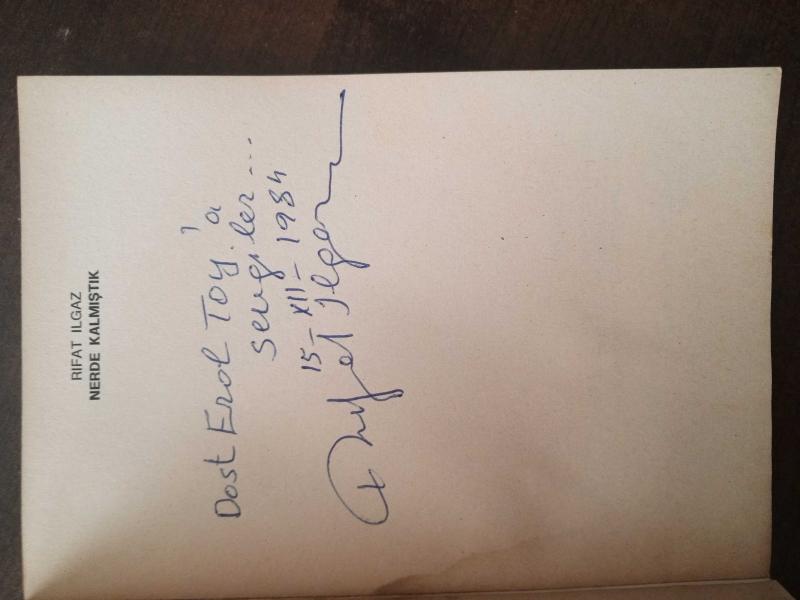 RIFAT ILGAZ
NERDE KALMIŞTIK
Dost Erol Toy'a
sevgiler...
15-XII-1984
Rıfat Ilgaz